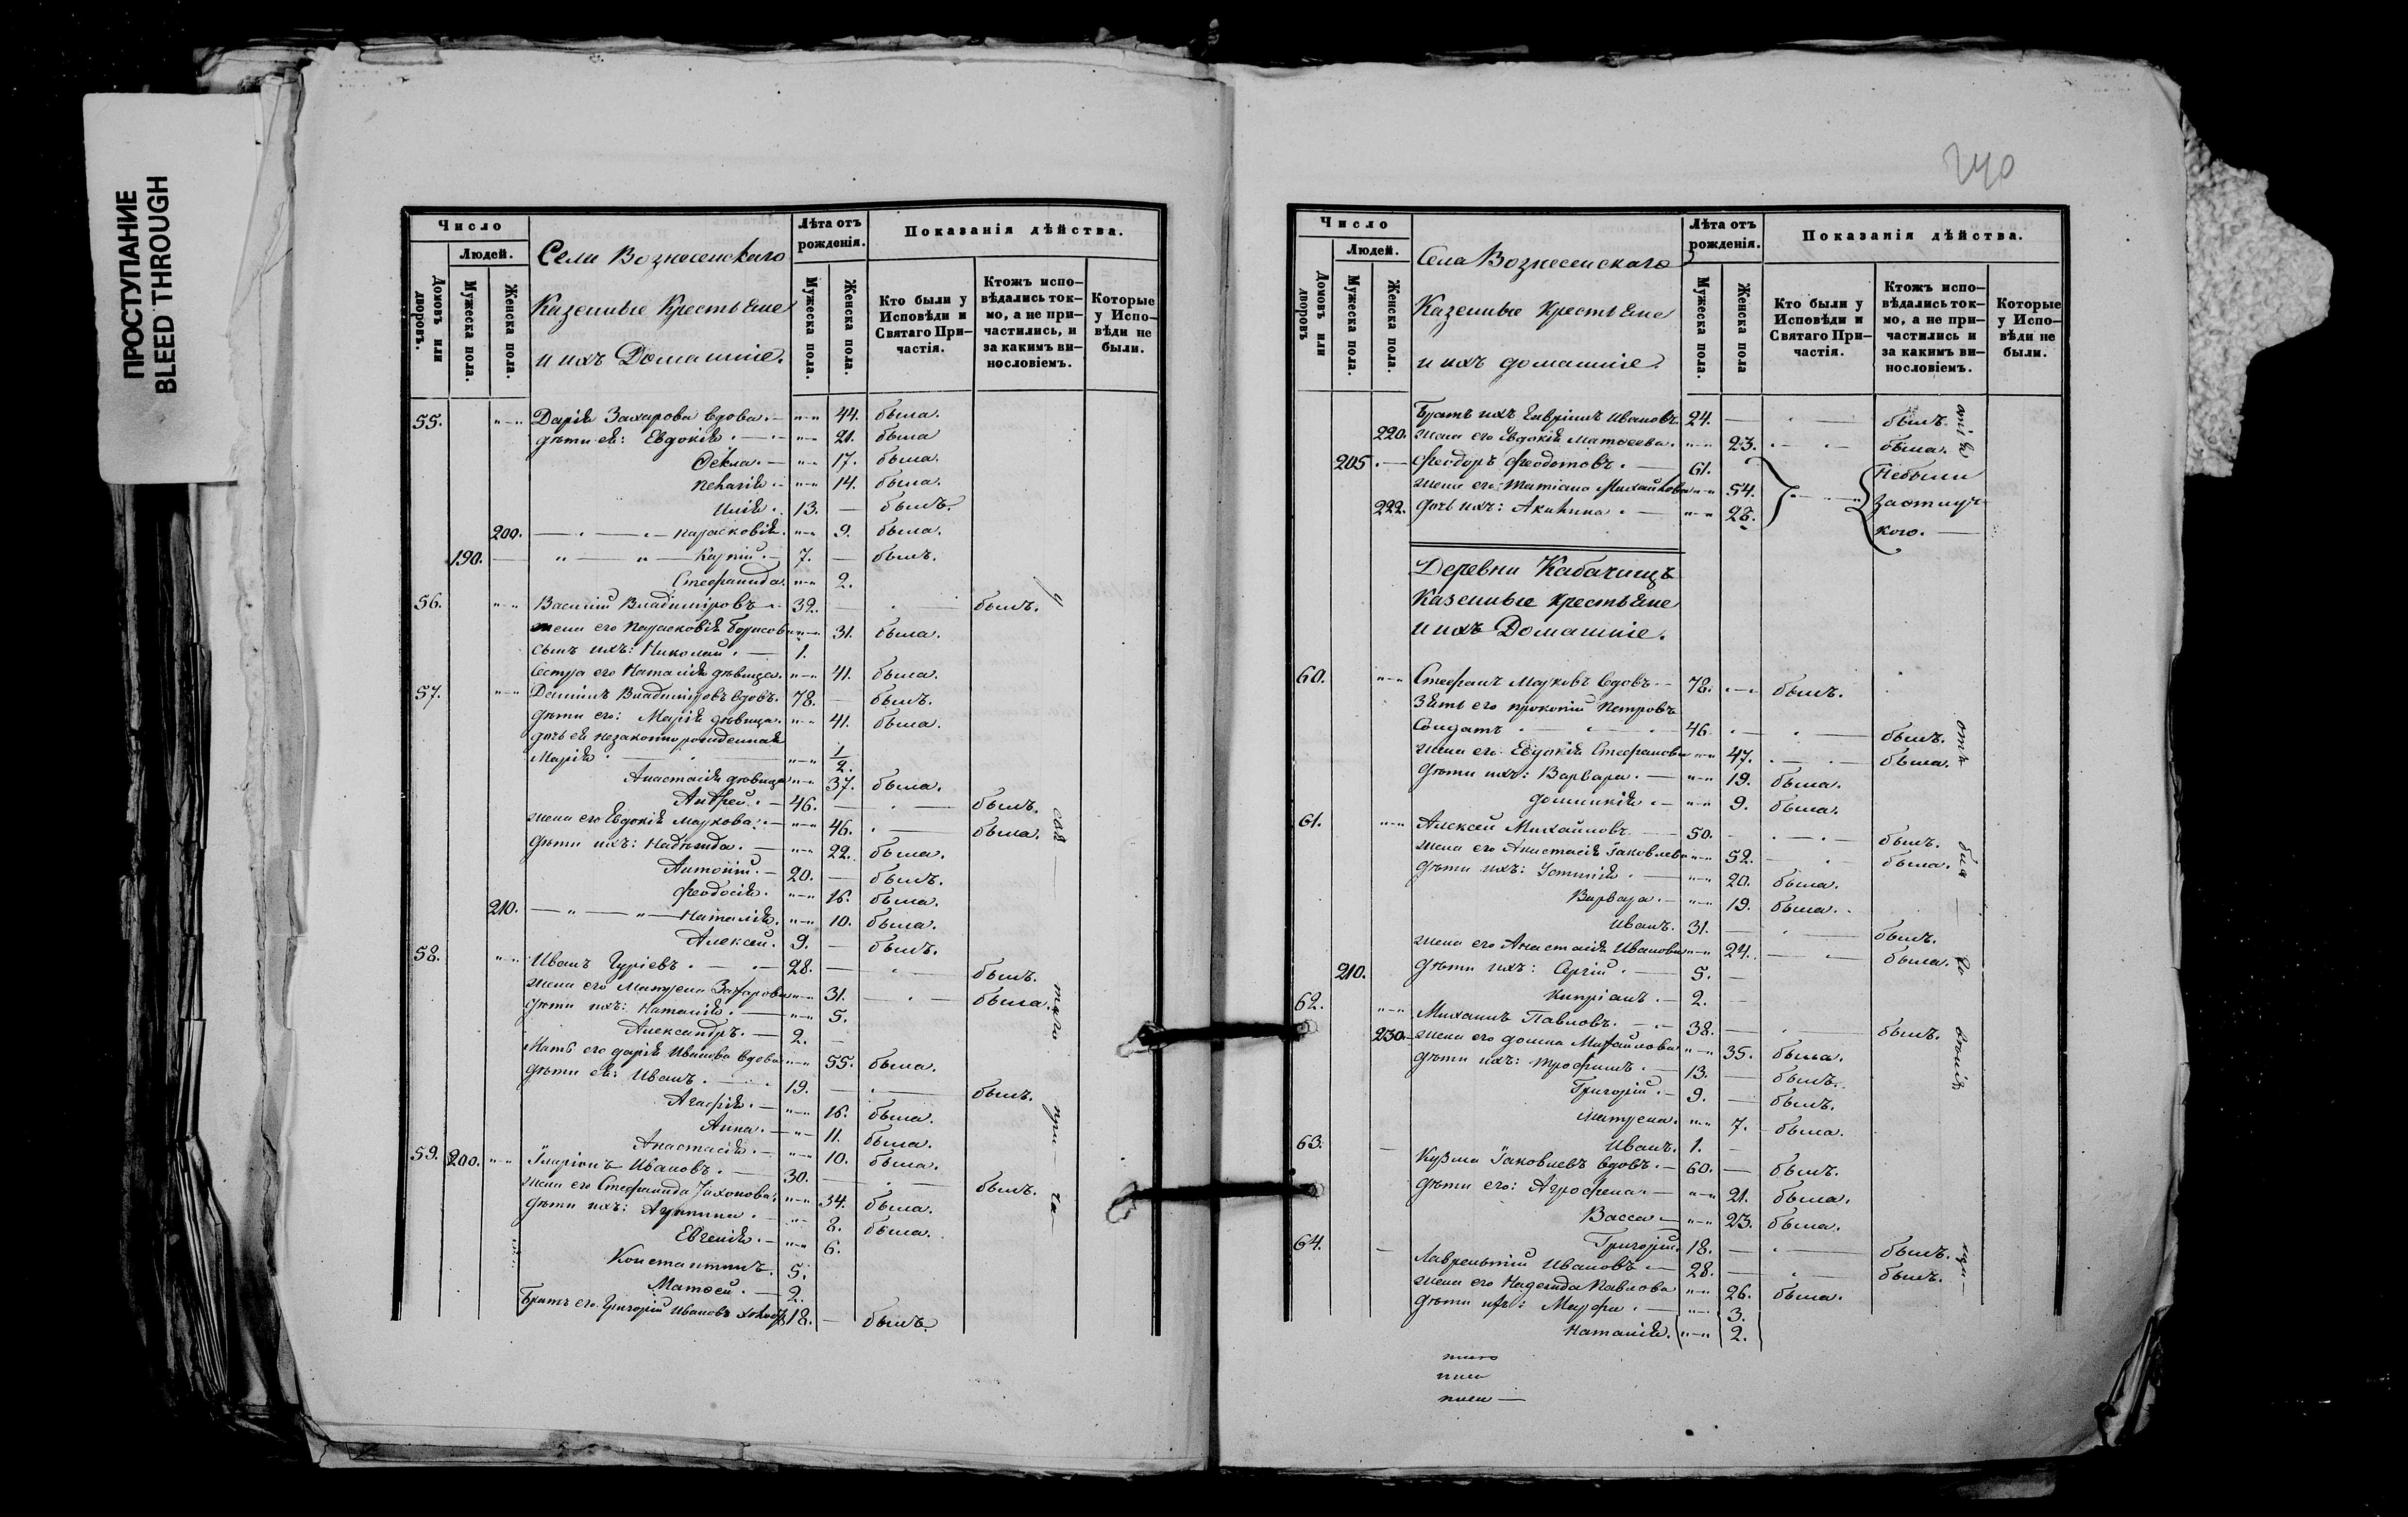 ПРОСТУПАНИЕ
BLEED THROUGH
Число
Людей.
Домовъ или дворовъ.
Мужеска пола.
Женска пола.
Села Вознесенскаго
Казенные Крестьяне
и ихъ Домашніе.
Лѣта отъ рожденія.
Мужеска пола.
Женска пола.
Показанія дѣйства.
Кто были у Исповѣди и Святаго Причастія.
Ктожъ исповѣдались токмо, а не причастились, и за какимъ винословіемъ.
Которые у Исповѣди не были.
55. Дарія Захарова вдова. 44. была.
дѣти ея: Евдокія. 21. была
Ѳекла. 17. была.
Пелагія. 14. была.
Илія. 13. — былъ.
200. Парасковія. 9. была.
190. Карпій. 7. — былъ.
Стефанида. 2.
56. Василій Владиміровъ 32. — былъ.
жена его Парасковія Борисова 31. была.
сынъ ихъ: Николай. 1.
Сестра его Наталія дѣвица. 41. была.
57. Владиміровъ вдовъ. 78. — былъ.
дѣти его: Марія дѣвица. 41. была.
дочь ея незаконнорожденная
Марія 1/2.
Анастасія дѣвица 37. была.
Андрей. 46. — былъ.
жена его Евдокія Маркова. 46. была.
дѣти ихъ: Надежда. 22. была.
Антоній. 20. — былъ.
Феодосія. 16. была.
210. Наталія. 10. была.
Алексей. 9. — былъ.
58. Иванъ Гуріевъ. 28. — былъ.
жена его Матрена Захарова 31. — была.
дѣти ихъ: Наталія. 5.
Александръ. 2. —
Мать его Дарія Иванова вдова 55. была.
дѣти ея: Иванъ. 19. — былъ.
Агафія. 16. была.
Анна. 11. была.
Анастасія. 10. была.
59. 200. Иларіонъ Ивановъ. 30. — былъ.
жена его Стефанида 34. была.
дѣти ихъ: 8. была.
Евгенія. 6.
Константинъ. 5.
Матѳей. 2.
Братъ его Григорій Ивановъ 18. — былъ.
240
Число
Людей.
Домовъ или дворовъ
Мужеска пола.
Женска пола.
Села Вознесенскаго
Казенные Крестьяне
и ихъ домашніе.
Лѣта отъ рожденія.
Мужеска пола.
Женска пола
Показанія дѣйства.
Кто были у Исповѣди и Святаго Причастія.
Ктожъ исповѣдались токмо, а не причастились и за какимъ винословіемъ.
Которые у Исповѣди не были.
Братъ ихъ Ивановъ. 24. — былъ.
220. жена его Евдокія Матѳеева. 23. — была.
205. Феодоръ Феодотовъ. 61.
жена его Татіана Михайлова 54. Небыли
222. дочь ихъ: Акилина. 28.
Деревни Кабачищъ
Казенные Крестьяне
и ихъ Домашніе.
60. Стефанъ Марковъ вдовъ 78. былъ.
Зять его Прокопій Петровъ
Солдатъ 46. — былъ.
жена его Евдокія Стефанова 47. была.
дѣти ихъ: Варвара. 19. была.
Домникія. 9. была.
61. Алексей Михайловъ 50. — былъ.
жена его Анастасія Іаковлева 52. — была.
дѣти ихъ: Устинія. 20. была.
Варвара. 19. была.
Иванъ. 31. — былъ.
жена его Анастасія Иванова 24. — была.
210. дѣти ихъ: Сергій. 5. —
Кипріанъ. 2. —
62. Михаилъ Павловъ. 38. — былъ.
230. жена его Домна Михайлова 35. была.
дѣти ихъ: Трофимъ. 13. — былъ.
Григорій. 9. — былъ.
Матрена. 7. была.
Иванъ. 1. —
63. Кузма Іаковлевъ вдовъ. 60. — былъ.
дѣти его: Агрофена. 21. была.
Васса. 23. была.
Григорій. 18. — былъ.
64. Лаврентій Ивановъ 28. — былъ.
жена его Надежда Павлова 26. была.
дѣти ихъ: Марфа. 3.
Наталія. 2.